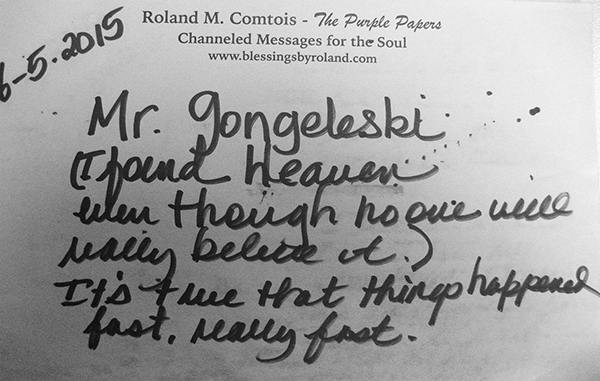 6-5.2015
Roland M. Comtois - The Purple Papers
Channeled Messages for the Soul
www.blessingsbyroland.com
Mr. Gongeleski
(I found heaven
even though no one will
really believe it.)
It's true that things happened
fast, really fast.